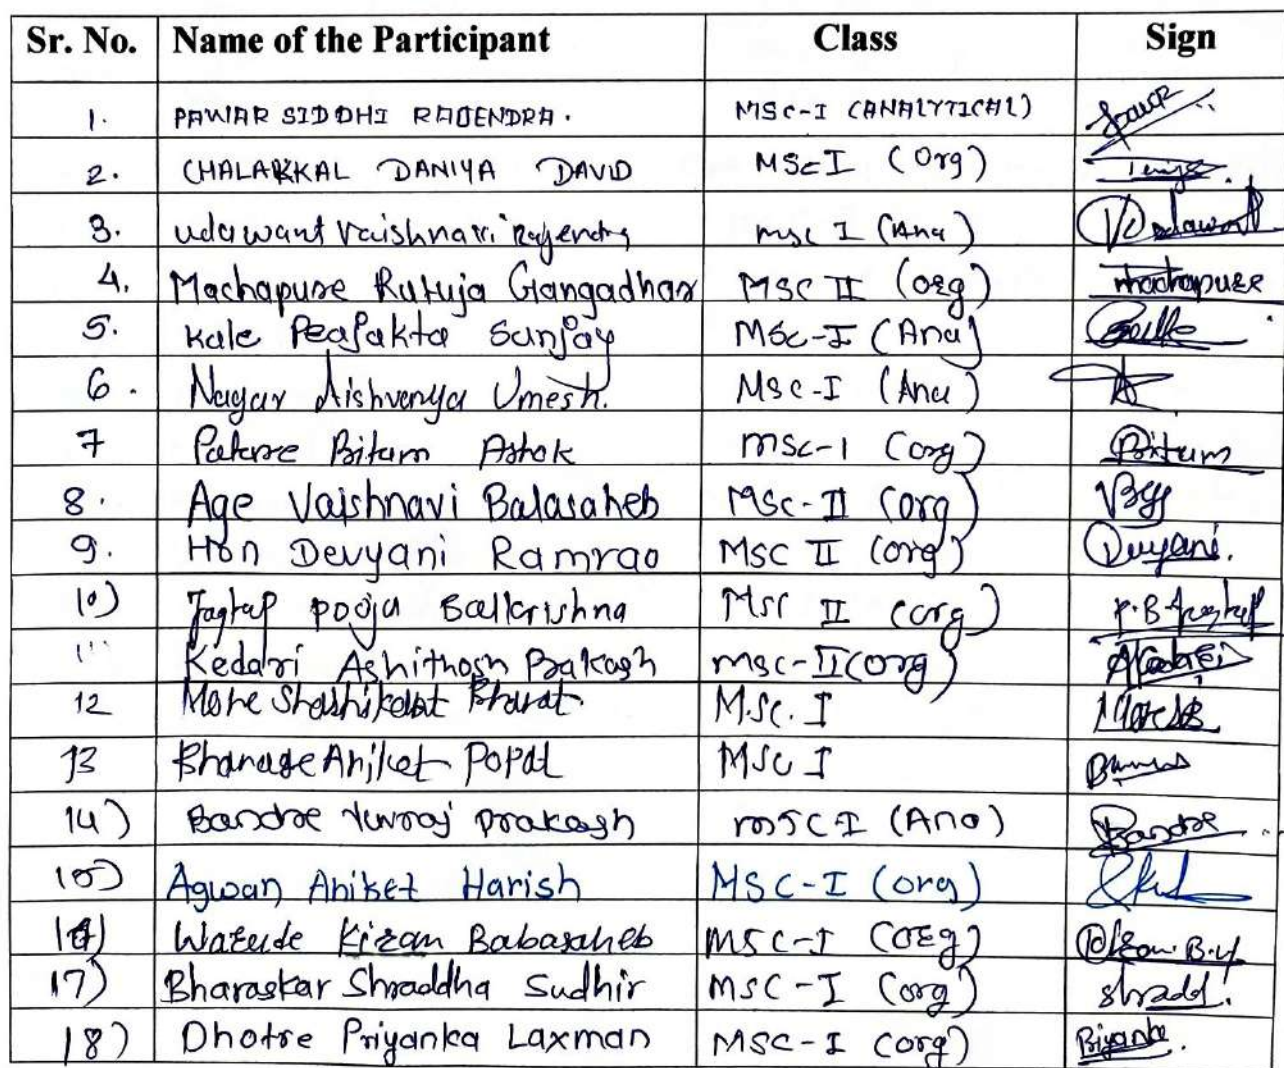 Sr. No. Name of the Participant Class Sign
1. PAWAR SIDDHI RAJENDRA. MSC-I (ANALYTICAL) Pawar
2. CHALAKKAL DANIYA DAVID MSc I (Org)
3. Udawant Vaishnavi Rajendra msc I (Ana) Udawant
4. Machapure Rutuja Gangadhar MSC II (org) Machapure
5. Kale Prajakta Sanjay MSc-I (Ana)
6. Nagar Aishvarya Umesh. MSC-I (Ana)
7 Ashok MSC-I (org)
8. Age Vaishnavi Balasaheb MSC-II (org)
9. Hon Devyani Ramrao MSC II (org) Devyani.
10) Jagtap Pooja Balkrishna MSC II (org) P.B. Jagtap
Kedari Ashithosh Prakash msc-II (org)
12 More Shashikant Bharat. M.Sc. I
13 Aniket Popat MSC I
14) Bandre Yuvraj Prakash MSC I (Ana) Bandre
15) Agwan Aniket Harish MSC-I (org)
16) Kiran Babasaheb MSC-I (org)
17) Bharaskar Shraddha Sudhir MSC-I (org) Shradd.
18) Dhotre Priyanka Laxman MSC-I (org) Priyanka.